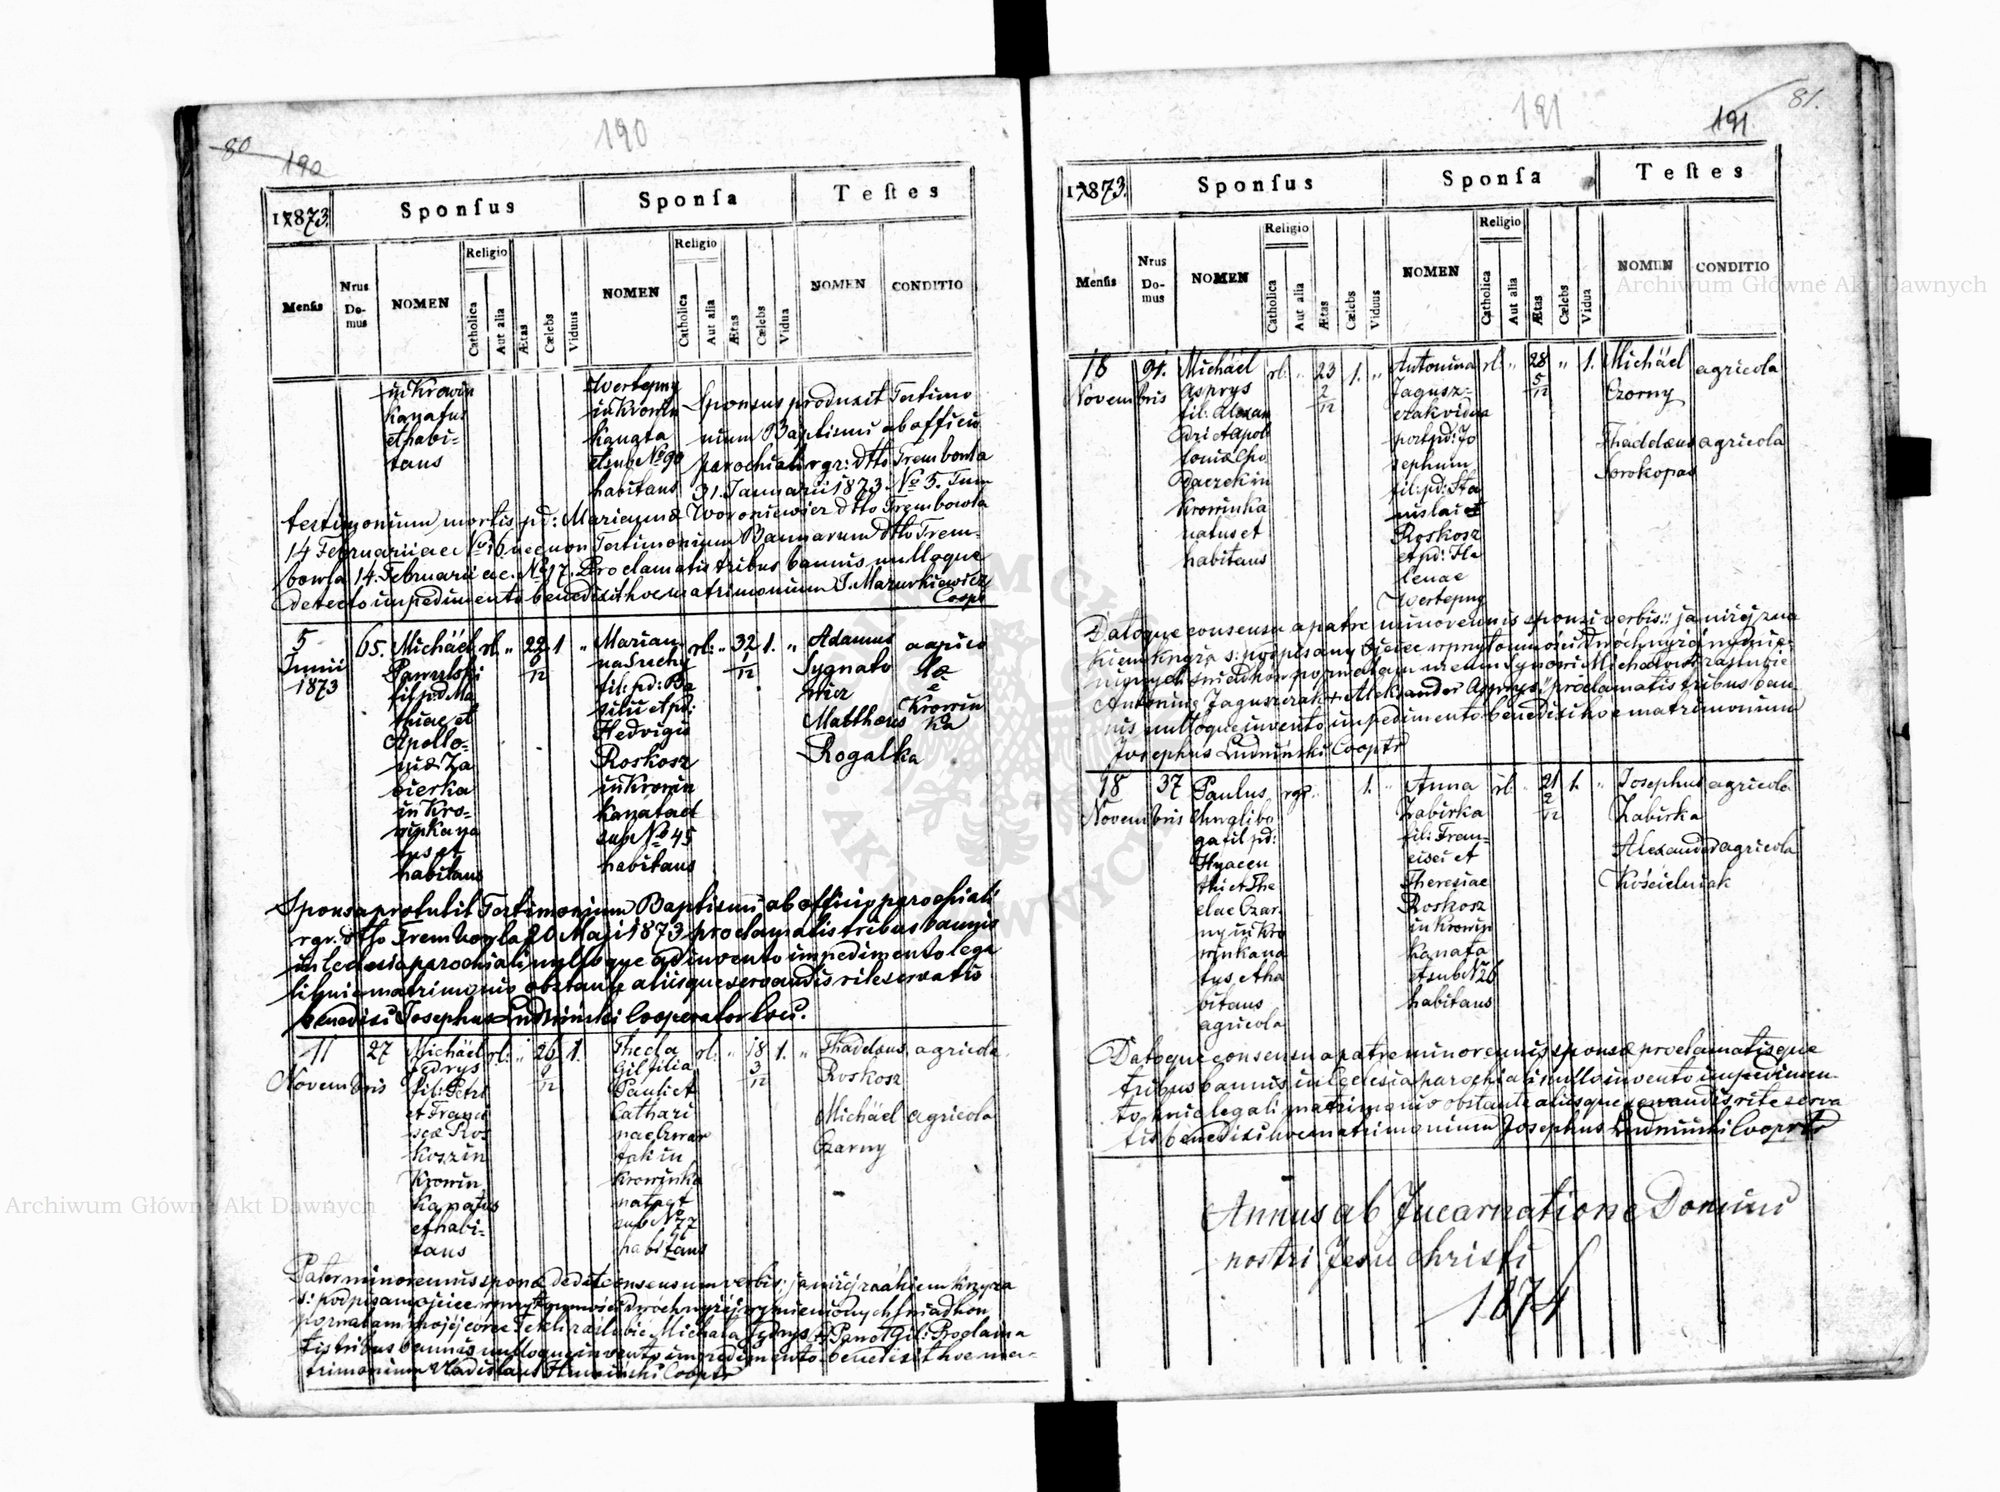 80
190
190
17873.
Sponſus
Sponſa
Teſtes
Menſis
Nrus Do-mus
NOMEN
Religio
Catholica
Aut alia
Ætas
Cælebs
Viduus
NOMEN
Religio
Catholica
Aut alia
Ætas
Cælebs
Vidua
NOMEN
CONDITIO
in Krowin
ka natus
et habi-
tans
Wertepny
in Krowin
ka nata
et sub No 90
habitans
Sponsus produxit Testimo
nium Baptismi ab officio
parochiali rgr: dtto Trembowla
31. Januarii 1873 No 5. Tum
testimonium mortis pd: Mariannæ Woroniewicz dtto Trembowla
14 Februarii a c No 16 necnon Testimonium Bannorum dtto Trem-
bowla 14. Februarii a c. No 17. Proclamatis tribus bannis nulloque
detecto impedimento benedixit hoc matrimonium J. Mazurkiewicz
Coop.
5
Junii
1873
65.
Michäel
Pawulski
fil: pd: Ma
thiae et
Apollo-
niæ Za
bierka
in Kro-
winka na
tus et
habitans
rl.
"
22
12
1
"
Marian
na Suchy
fil: pd: Ba
silii et pd:
Hedvigis
Roskosz
in Krowin
ka nata et
sub No 45
habitans
rl:
"
32
1
12
1.
"
Adamus
Sygnato
wicz
Matthæus
Rogalka
agrico
læ
e
Krowin
ka
Sponsa protulit Testimonium Baptismi ab officio parochiali
rgr. dtto Trembowla 20 Maji 1873 proclamatis tribus bannis
in Ecclesia parochiali nulloque adinvento impedimento lega
li huic matrimonio obstante aliisque servandis rite servatis
benedixi Josephus Ludmiński Cooperator loci.
11
Novembris
27
Michäel
Jedrys
fil: Petri
et Franci
scæ Ros
kosz in
Krowin
ka natus
et habi-
tans
rl:
"
26
12
1.
Thecla
Gil filia
Pauli et
Cathari
nae Czwar
tak in
Krowinka
nata et
sub No 77
habitans
rl.
"
18
3
12
1.
"
Thaddæus
Roskosz
Michäel
Czarny
agricola
agricola
Pater minorennis sponsæ dedit consensum verbis: ja niżej znakiem krzyża
s: podpisany ojciec w przytomności dwóch niżej wymienionych świadków
pozwalam mojéj córce Tekli zaślubić Michała Jędrys + Paweł Gil: Proclama
tis tribus bannis nulloque invento impedimento benedixit hoc ma-
trimonium Vladislaus Coopr
81.
191
191
17873.
Sponſus
Sponſa
Teſtes
Menſis
Nrus Do-mus
NOMEN
Religio
Catholica
Aut alia
Ætas
Cælebs
Viduus
NOMEN
Religio
Catholica
Aut alia
Ætas
Cælebs
Vidua
NOMEN
CONDITIO
Archiwum Główne Akt Dawnych
18
Novembris
91.
Michäel
Asprys
fil: Alexan
dri et Apol
loniæ Cho
daczek in
Krowinka
natus et
habitans
rl.
"
23
2
12
1.
"
Antonina
Jagusz-
czak vidua
post pd: Jo
sephum
fil: pd: Sta
nislai et
Roskosz
et pd: He
lenae
Wertepny
rl:
"
28
5
12
"
1.
Michäel
Czorny
Thaddæus
Sorokopas
agricola
agricola
Datoque consensu a patre minorennis sponsi verbis: "ja niżej zna
kiem krzyża s: podpisany Ojciec w przytomności dwóch niżej wymie-
nionych świadków pozwalam memu Synowi Michałowi zaślubić
Antoninę Jaguszczak + Aleksander Asprys" proclamatis tribus ban
nis nulloque invento impedimento benedixi hoc matrimonium
Josephus Ludmiński Cooptr
18
Novembris
37
Paulus
Chwalibo
ga fil pd:
Hyacin
thi et The
clae Czar
ny in Kro
winka na
tus et ha
bitans
agricola
rgr.
1.
"
Anna
Zabirka
fil: Fran-
cisci et
Theresiae
Roskosz
in Krowin
ka nata
et sub N 26
habitans
rl.
21
2
12
1.
"
Josephus
Zabirka
Alexander
Kościelniak
agricola
agricola
Datoque consensu a patre minorennis sponsæ proclamatisque
tribus bannis in Ecclesia parochiali nullo invento impedimen-
to huic legali matrimonio obstante aliisque servandis rite serva
tis benedixi hoc matrimonium Josephus Ludmiński Cooprtr
Annus ab Incarnatione Domini
nostri Jesu Christi
1874
Archiwum Główne Akt Dawnych
ARCHIWUM GŁÓWNE AKT DAWNYCH